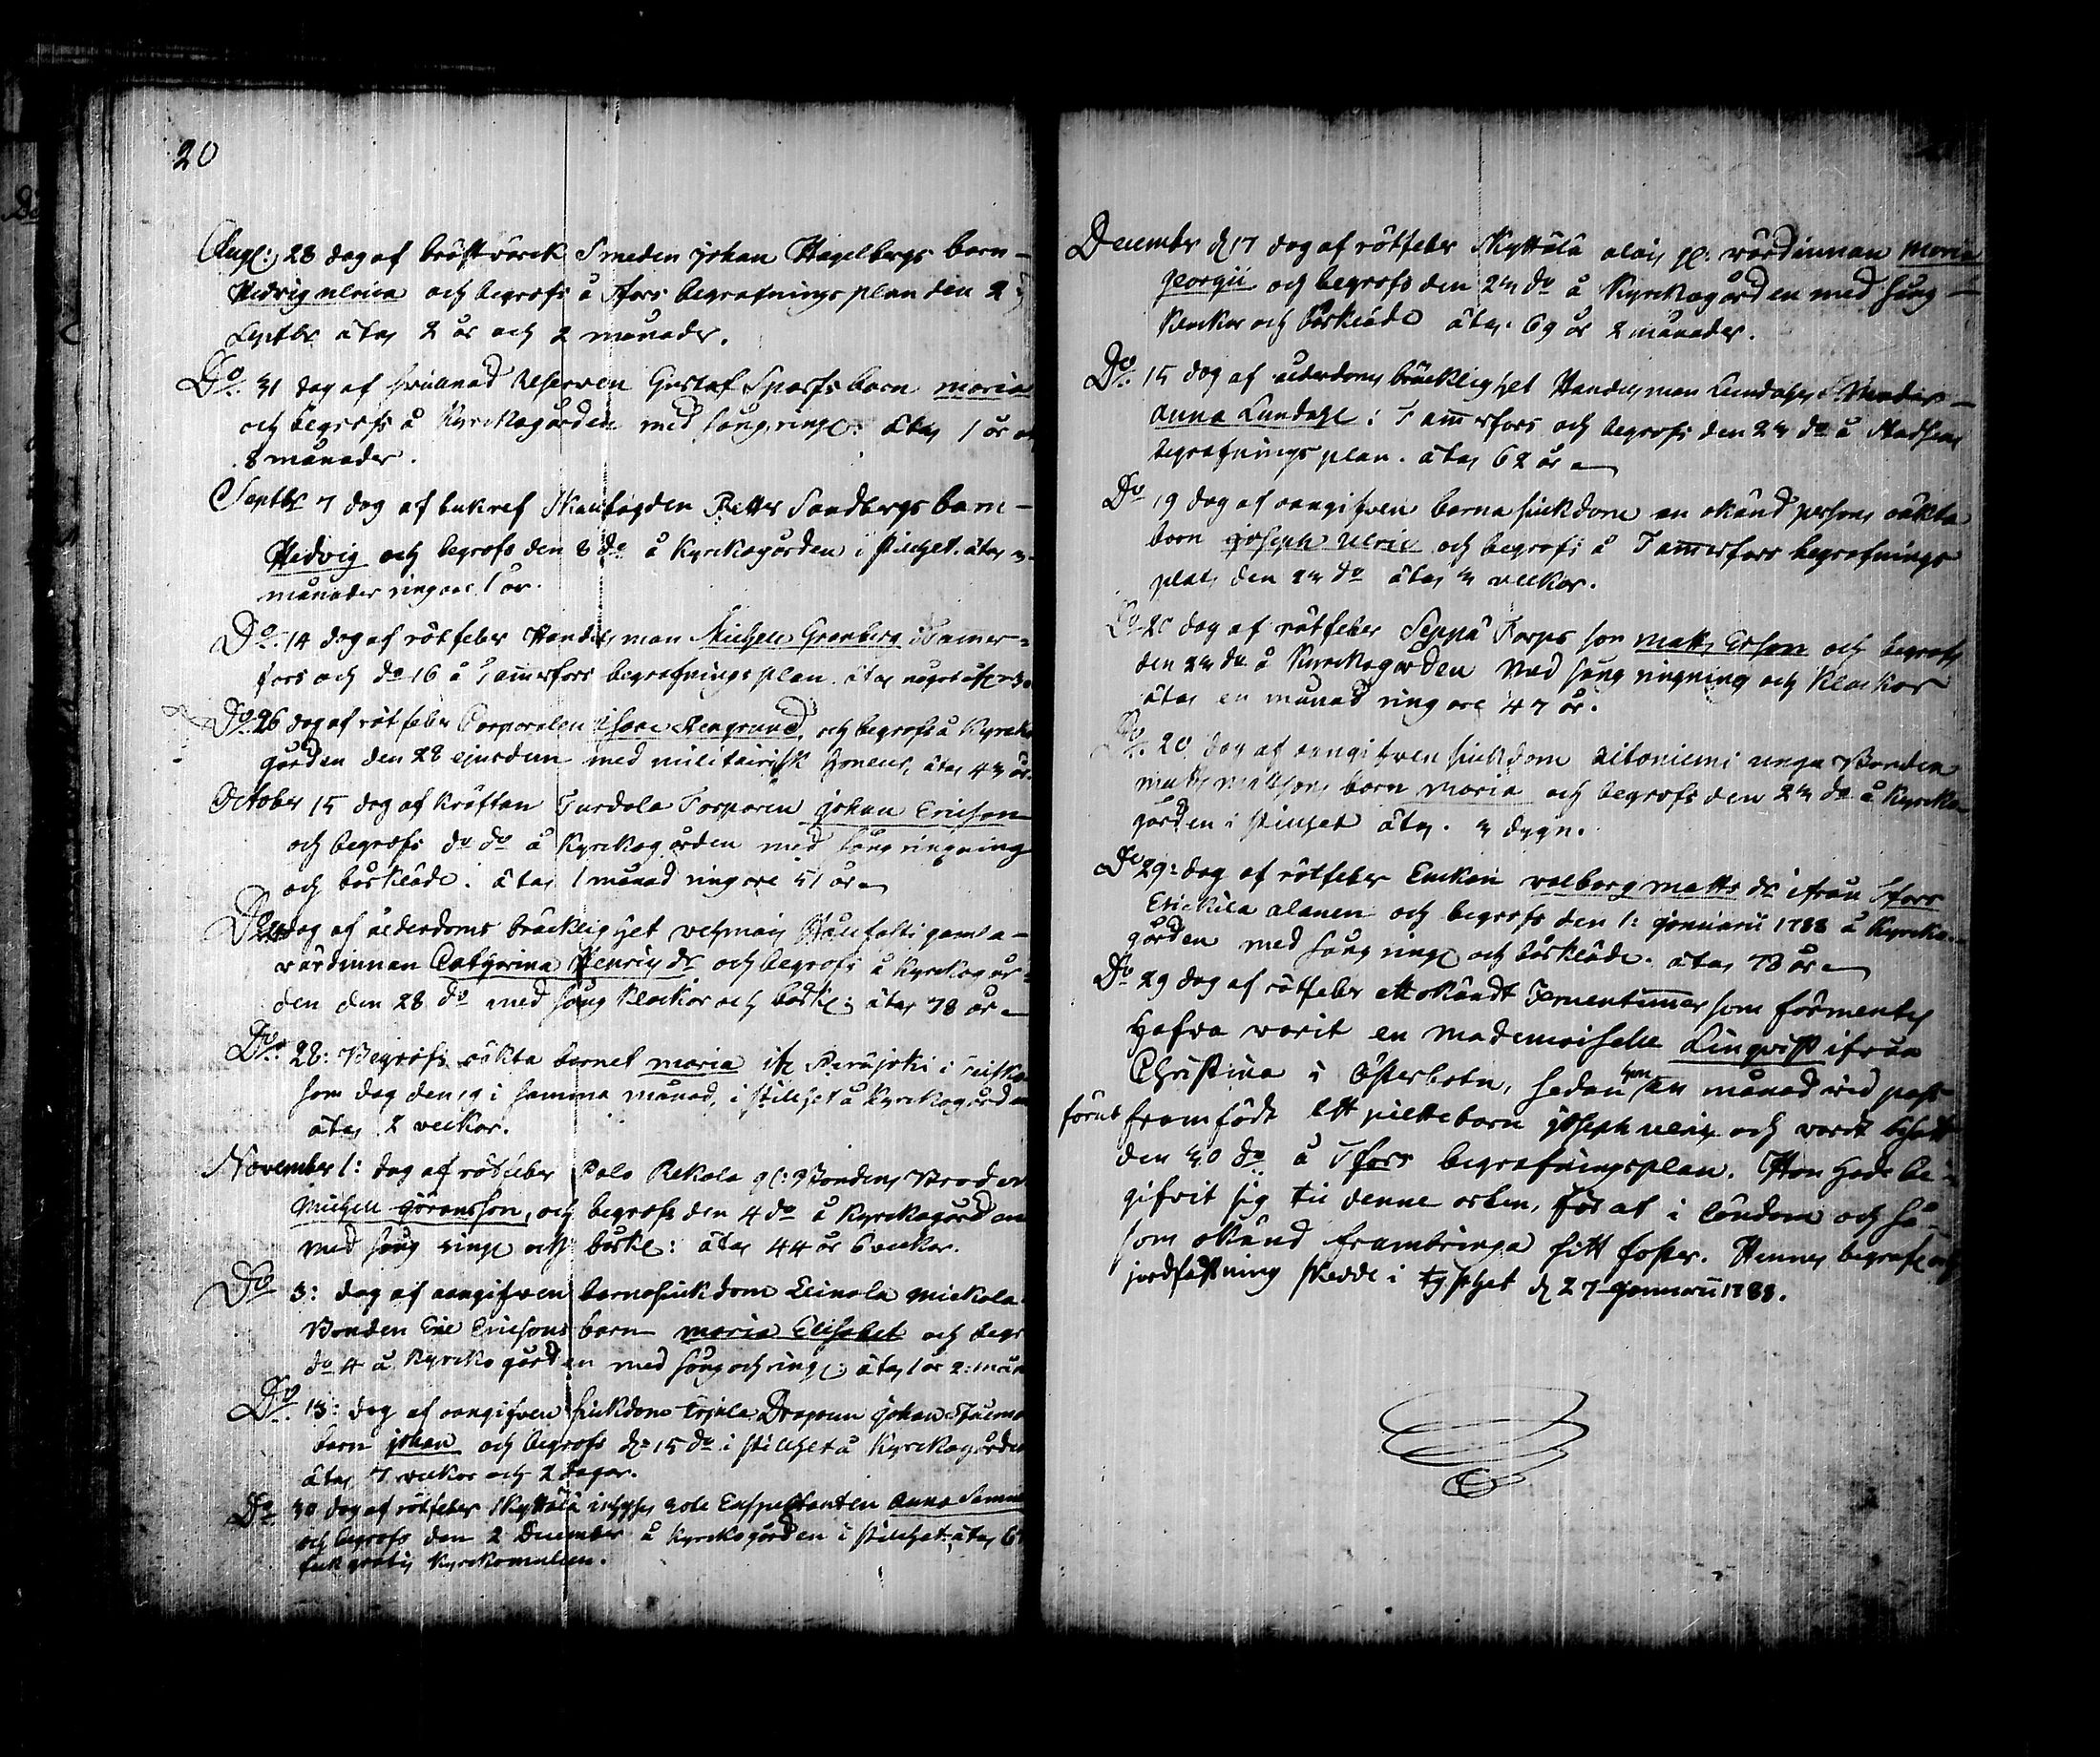 20
Aug: 28 dog af bröstvärck Smeden Johan Hagelbergs barn
Hedvig Ulrica och begrofs å Tfors begrafnings plan den 2
Septbr ätas 2 år och 2 månader.
Do 31 dog af Gustaf Sparfs barn Maria
och begrofs å Kyrckogården med sång, ringn: ätas 1 år och
8 månader.
Septbr 7 dog af Petter Sandbergs barn
Hedvig och begrofs den 8 do å Kyrckogården i stillhet. ätas
månader ringare 1 år.
Do 14 dog af rötfeber Handelsman Michele Granberg i Tamer-
fors och do 16 å Tammerfors begrafnings plan. ätas något öfver
Do 26 dog af rötfeber Corporalen Isaac och begrofs å Kyrcko
gården den 28 ejusdem med militairisk honeur, ätas 43 år.
October 15 dog af kräftan Turdola Torparen Johan Ericson
och begrofs do do å Kyrckogården med sång ringning
och bårkläde. ätas 1 månad ringare 51 år
Do dog af ålderdoms bräcklighet gamla
värdinnan Catharina Henrics dr och begrofs å Kyrckogår-
den den 28 do med sång klockor och bårkl: ätas 78 år
Do 28: Begrofs oäkta barnet Maria
som dog den 19 i samma månad, i stillhet å Kyrckogården
ätas 2 veckor.
November 1: dog af rötfeber Palo Rekola gl: Bondens Broder
Michele Göransson, och begrofs den 4 do å Kyrckogården
med sång ringn och bårkl: ätas 44 år 6 veckor.
Do 3: dog af oangifven barnasiukdom Leinola Mickola
Bonden Eric Ericsons barn Maria Elisabet och begr
do 4 å Kyrckogården med sång och ringn: ätas 1 år 2: mån
Do 13: dog af oangifven siukdom Dragoun Johan
barn Johan och begrofs d: 15 do i stillhet å Kyrckogården
ätas 7 veckor och 2 dagar.
Do 30 dog af rötfeber Skyttälä Anna
och begrofs den 2 December å Kyrckogården i stillhet. ätas
gratis Kyrkomullen.
December d 17 dog af rötfeber Skyttälä gl: värdinnan Maria
Georgii och begrofs den 23 do å Kyrckogården med sång
klockor och bårkläde ätas. 69 år 2 månader.
Do 15 dog af ålderdoms bräcklighet Handelsman Lundahls Moder
Anna Lundahl i Tammerfors och begrofs den 23 do å Stadsens
begrafnings plan. ätas 62 år
Do 19 dog af oangifven barna siukdom en okänd persons oäkta
barn Joseph Ulric och begrofs å Tammerfors begrafnings
plats den 23 do ätas 3 veckor.
Do 20 dog af rötfeber Seppä Torps son Matts Erson och begrofs
den 23 do å Kyrckogården med sång ringning och klockor
ätas en månad ringare 47 år.
Do 20 dog af oangifven siukdom Aitoniemi unga Bonden
Matts Mattsons barn Maria och begrofs den 23 do å Kyrcko
gården i stillhet ätas. 3 dygn.
Do 29: dog af rötfeber Enckan Valborg Matts dr ifrån Tfors
och begrofs den 1: Januarii 1788 å Kyrcko-
gården med sång ringn och bårkläde. ätas 78 år
Do 29 dog af rötfeber ett okändt som förmentes
hafva varit en Mademoiselle Linqvist ifrån
Christina i Österbotn, sedan hon en månad vid pass
förut framfödt ett piltebarn Joseph Ulric och vardt bisatt
den 30 do å Tfors begrafningsplan. Hon hade be-
gifvit sig til denne orten, för at i löndom och så-
som okänd frambringa sitt foster. Hennes begrafn och
jordfästning skedde i tysthet d 27 Januarii 1788.